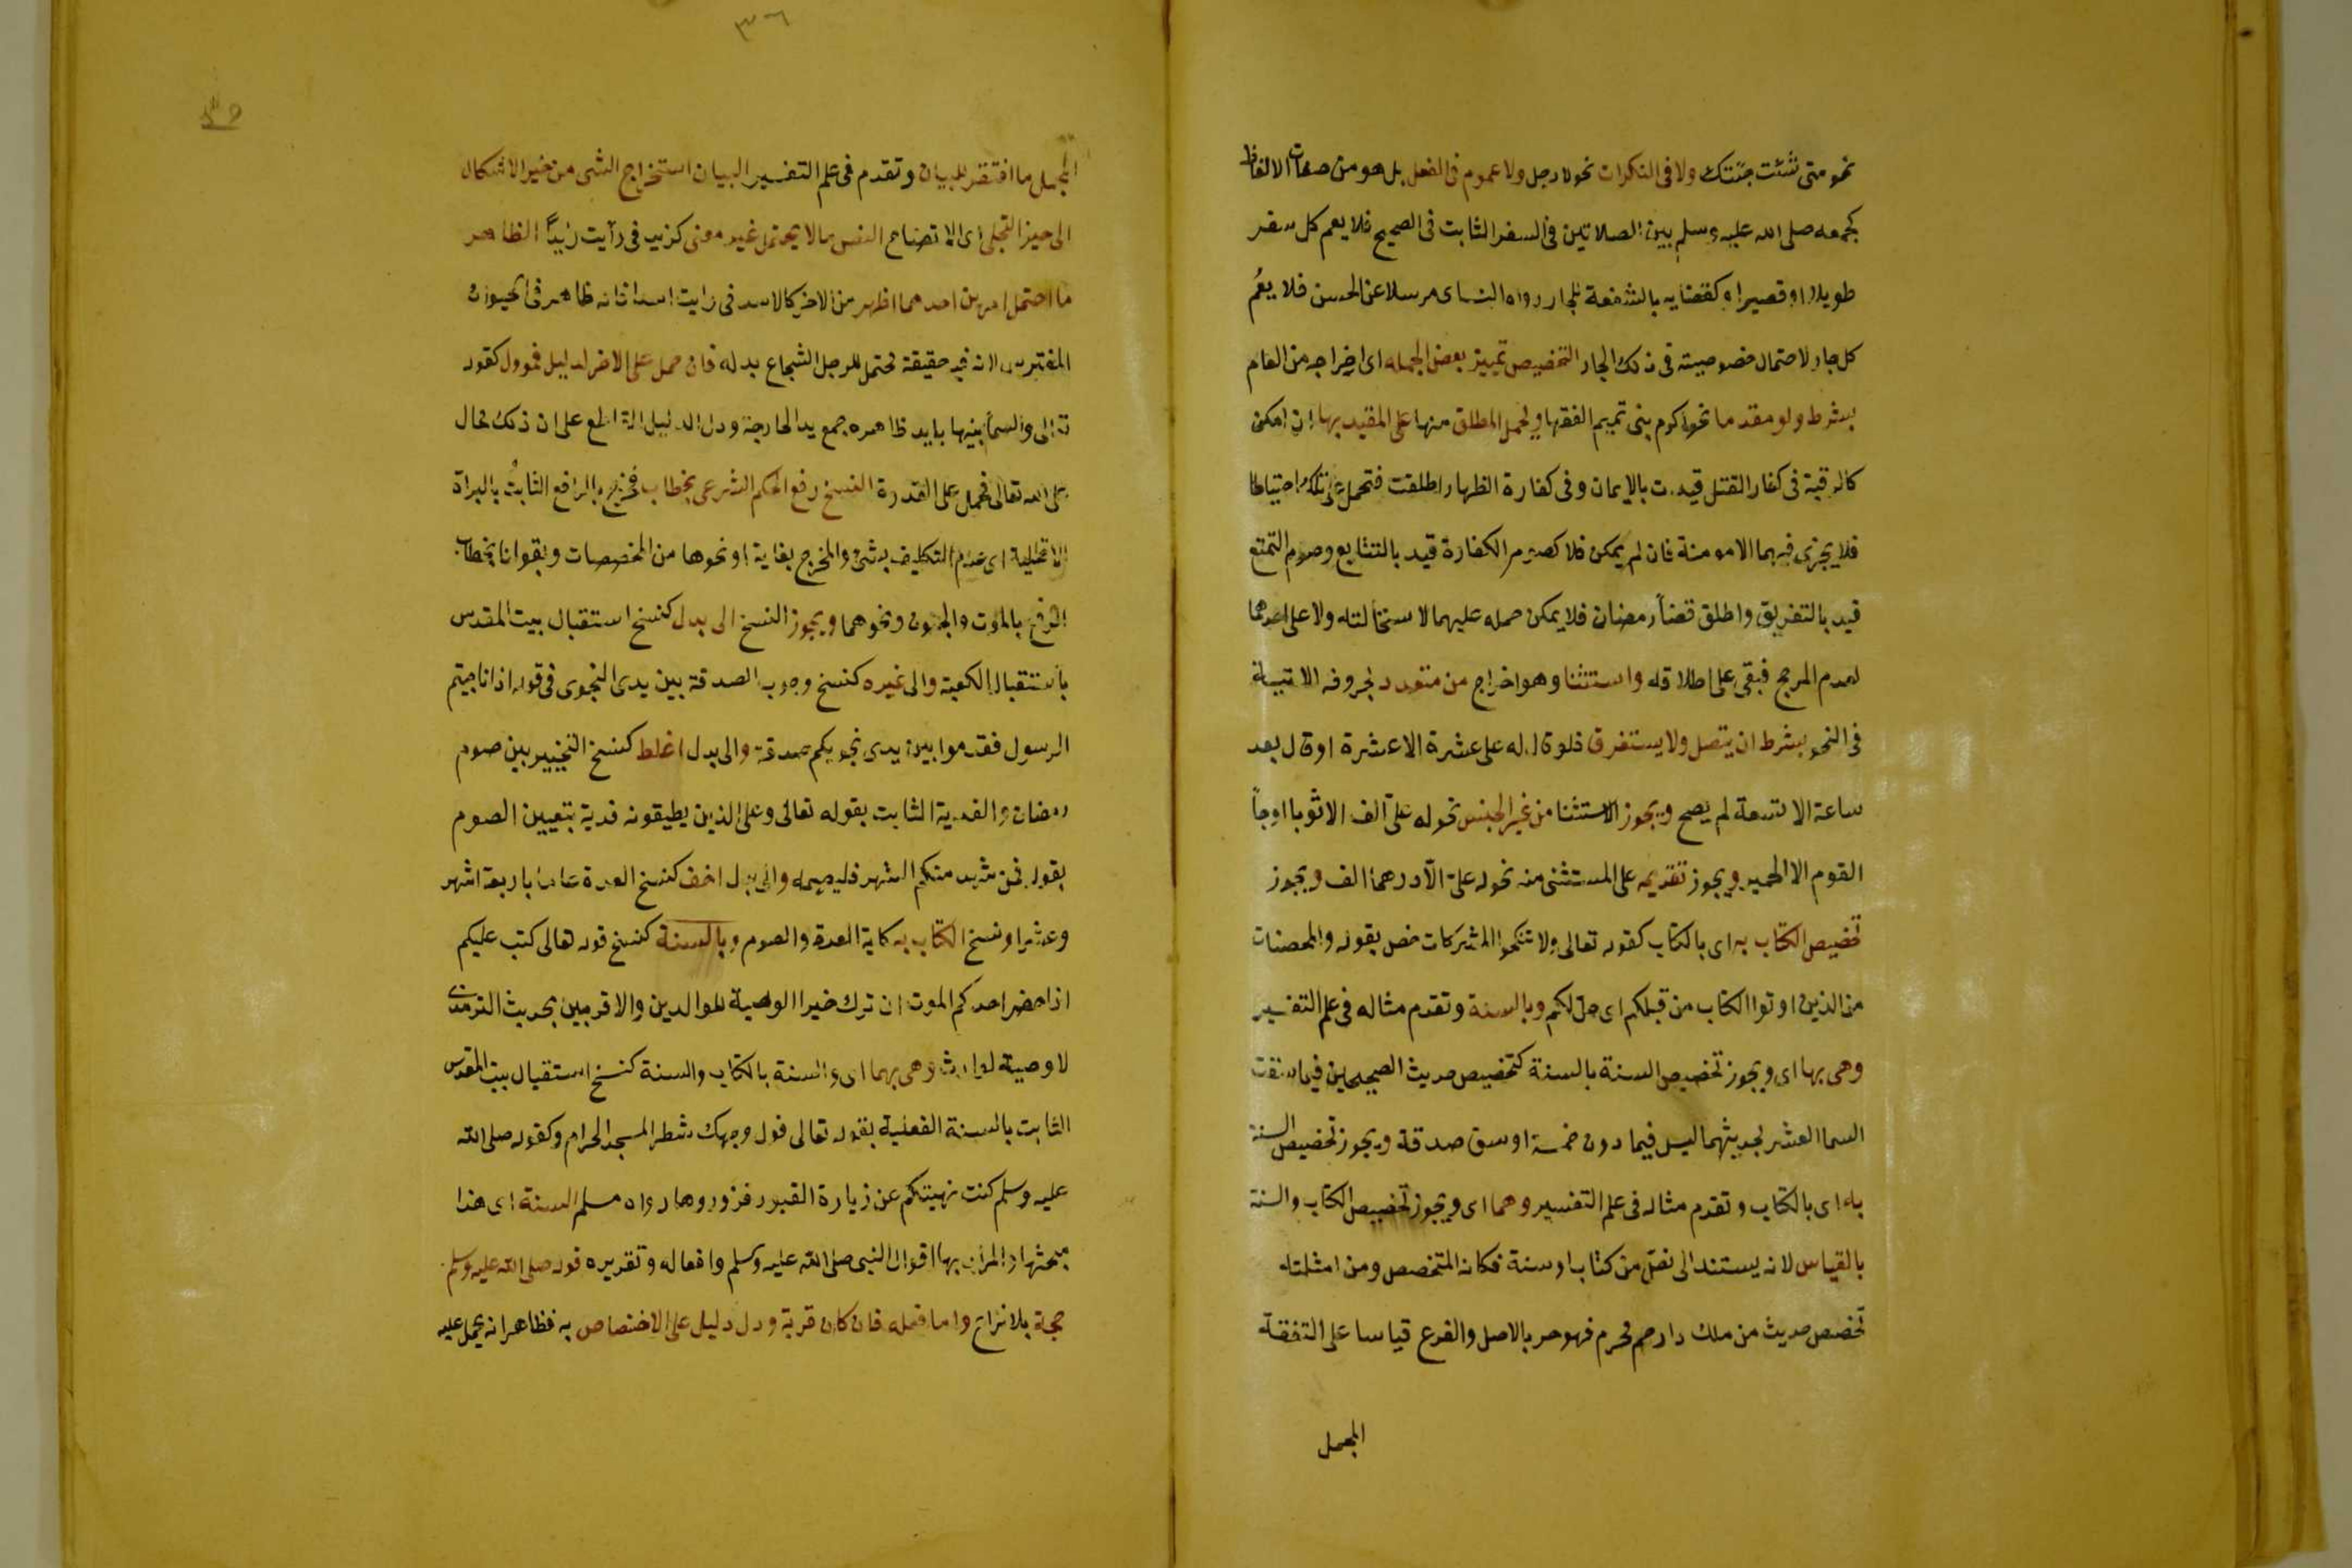 نحو متى شئت جئتك ولا في النكرات نحو لا رجل ولا عموم في الفعل بل هو من صفات الالفاظ
كجمعه صلى الله عليه وسلم بين الصلاتين في السفر الثابت في الصحيح فلا يعم كل سفر
طويلا او قصيرا وكقضايه بالشفعة للجار رواه النساى مرسلا عن الحسن فلا يعُم
كل جار لاحتمال خصوصيته في ذلك الجار التخصيص تمييز بعض الجمله اى اخراجه من العام
بشرط ولو مقدما نحو اكرم بنى تميم الفقها ويحمل المطلق منها على المقيد بها ان امكن
كالرقبة في كفار القتل قيدت بالايمان وفي كفارة الظهار اطلقت فتحمل على تلك احتياطا
فلا يجزى فيهما الا مومنة فان لم يمكن فلا كصوم الكفارة قيد بالتتابع وصوم التمتع
قيد بالتفريق واطلق قضاً رمضان فلا يمكن حمله عليهما لاستحالته ولا على احدهما
لعدم المرجح فبقى على اطلاقه واستثنا وهو اخراج من متعدد بحروفه الاتيية
في النحو بشرط ان يتصل ولا يستغرق فلو قال له على عشرة الا عشرة او قال بعد
ساعة الا تسعة لم يصح ويجوز الاستثنا من غير الجنس نحو له علىّ الف الا ثوبا او جاً
القوم الا الحمير ويجوز تقديمه على المستثنى منه نحو له علىّ الّا درهما الف ويجوز
تخصيص الكتاب به اى بالكتاب كقوله تعالى ولا تنكحوا المشركات خص بقوله والمحصنات
من الذين اوتوا الكتاب من قبلكم اى حل لكم وبالسنة وتقدم مثاله في علم التفسير
وهى بها اى ويجوز تخصيص السنة بالسنة كتخصيص حديث الصحيحين فيما سقت
السما العشر بحديثهما ليس فيما دون خمسة اوسق صدقة ويجوز تخصيص السنة
به اى بالكتاب وتقدم مثاله في علم التفسير وهما اى ويجوز تخصيص الكتاب والسنة
بالقياس لانه يستند الى نصّ من كتاب او سنة فكانه المتخصص ومن امثلته
تخصص حديث من ملك دا رحم محرم فهو حر بالاصل والفرع قياسا على التفقة
المجمل
٣٦
المجمل ما افتقر للبيان وتقدم في علم التفسير البيان استخراج الشى من حيز الاشكال
الى حيز التجلى اى الاتضاح النص ما لا يحتمل غير معنى كزيد في رآيت زيداً الظاهر
ما احتمل امرين احدهما اظهر من الاخر كالاسد في رايت اسدا فانه ظاهر في الحيوان
المفترس لانه فيه حقيقة محتمل للرجل الشجاع بدله فان حمل على الاخر لدليل فمووّل كقوله
تعالى والسمآ بنيها بايد ظاهره جمع يد الجارحة ودل الدليل القاطع على ان ذلك محال
على الله تعالى فحمل على القدرة النسخ رفع الحكم الشرعى بخطاب فخرج بالرافع الثابتُ بالبراة
الاصلية اى عدم التكليف بشئ والمخرج بغاية او نحوها من المخصصات وبقوانا بخطاب
الرفع بالموت والجنون ونحوهما ويجوز النسخ الى بدل كنسخ استقبال بيت المقدس
باستقبال الكعبة والى غيره كنسخ وجوب الصدقة بين يدى النجوى في قوله اذا ناجيتم
الرسول فقدموا بين يدى نجويكم صدقة والى بدل اغلط كنسخ التخيير بين صوم
رمضان والفدية الثابت بقوله تعالى وعلى الذين يطيقونه فدية بتعيين الصوم
بقوله فمن شهد منكم الشهر فليصمه والى بدل اخف كنسخ العدة عاما باربعة اشهر
وعشرا ونسخ الكتاب به كاية العدة والصوم وبالسنة كنسخ قوله تعالى كتب عليكم
اذا حضر احدكم الموت ان ترك خيرا الوصية للوالدين والاقربين بحديث الترمذى
لا وصية لوارث وهى بهما اى والسنة بالكتاب والسنة كنسخ استقبال بيت المقدس
الثابت بالسنة الفعلية بقوله تعالى فول وجهك شطر المسجد الحرام وكقوله صلى الله
عليه وسلم كنت نهيتكم عن زيارة القبور فزوروها رواه مسلم السنة اى هذا
مبحثها والمراد بها اقوال النبى صلى الله عليه وسلم وافعاله وتقريره قوله صلى الله عليه وسلم
حجة بلا نزاع واما فعله فان كان قربة ودل دليل على الاختصاص به فظاهر انه يحمل عليه